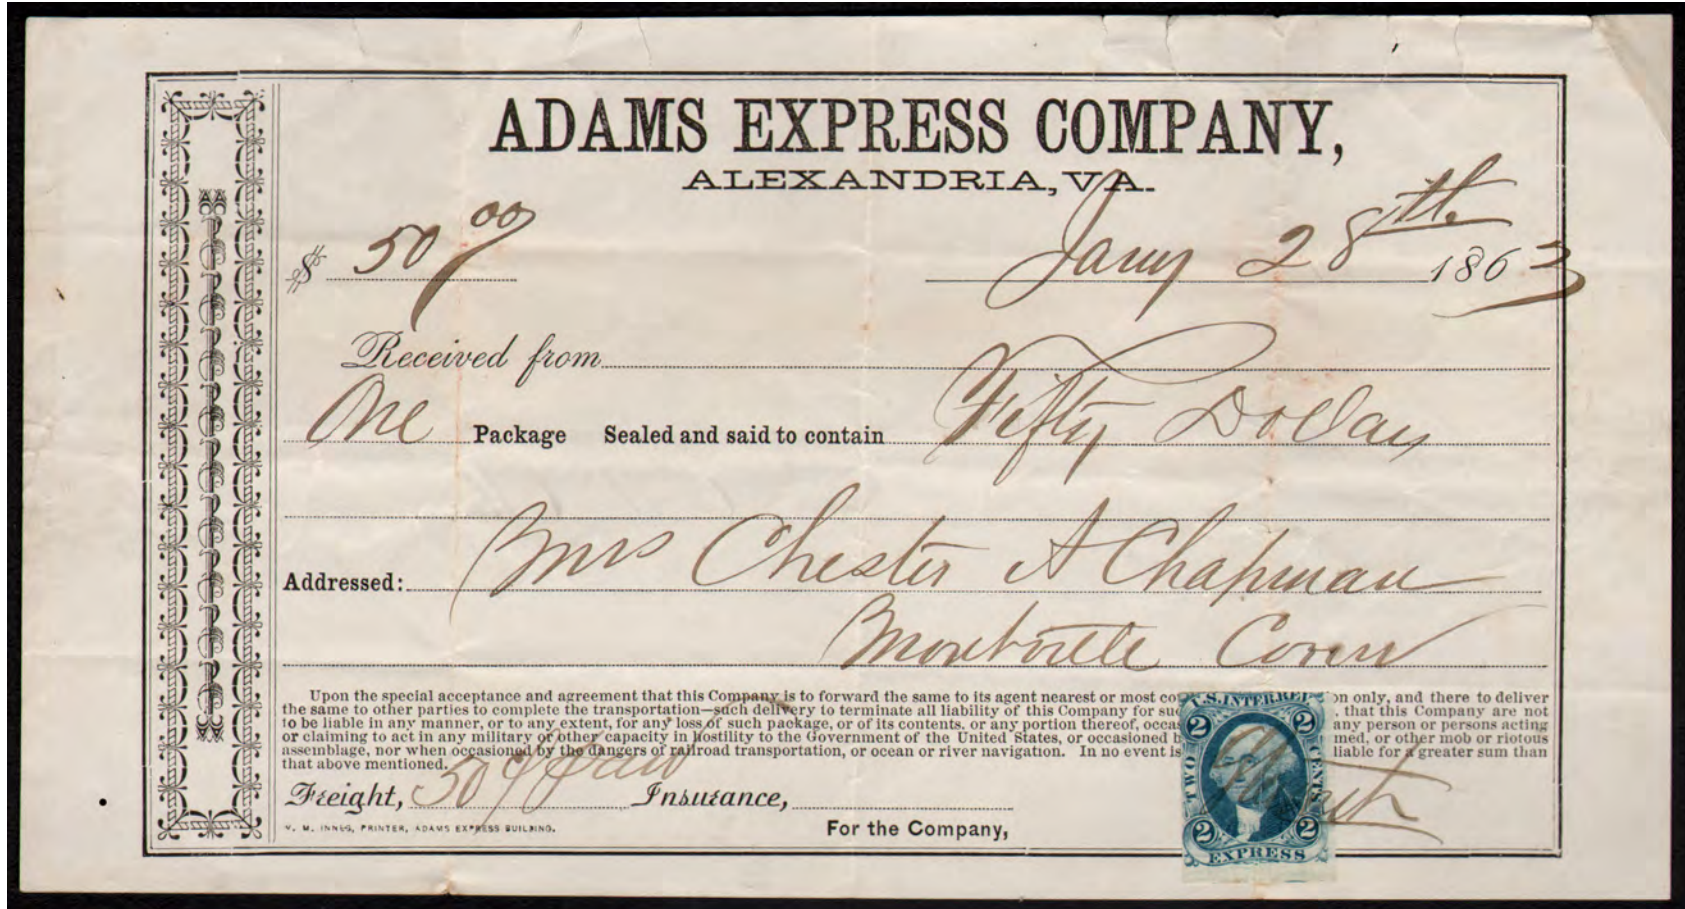 ADAMS EXPRESS COMPANY,
ALEXANDRIA, VA.
$ 50 00 Jany 28th 1863
Received from
One Package Sealed and said to contain Fifty Dollars
Addressed: Mrs Chester A Chapman
Montville Conn
Upon the special acceptance and agreement that this Company is to forward the same to its agent nearest or most co on only, and there to deliver
the same to other parties to complete the transportation—such delivery to terminate all liability of this Company for suc , that this Company are not
to be liable in any manner, or to any extent, for any loss of such package, or of its contents, or any portion thereof, occas any person or persons acting
or claiming to act in any military or other capacity in hostility to the Government of the United States, or occasioned b med, or other mob or riotous
assemblage, nor when occasioned by the dangers of railroad transportation, or ocean or river navigation. In no event is liable for a greater sum than
that above mentioned.
Freight, 50 Insurance,
M. INNES, PRINTER, ADAMS EXPRESS BUILDING.
For the Company,
U.S. INTER. REV
2 2
TWO CENTS
2 2
EXPRESS